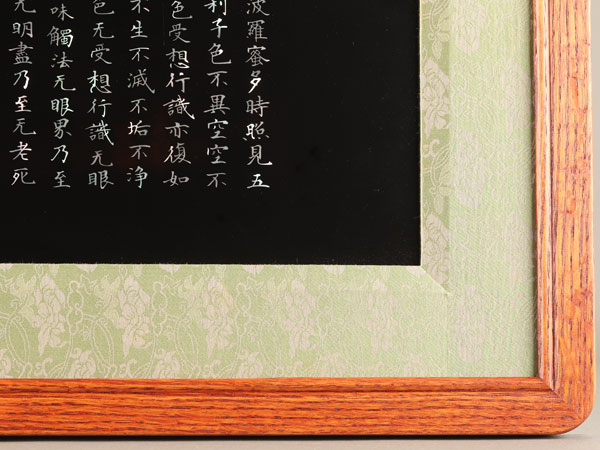 波羅蜜多時照見五
利子色不異空空不
色受想行識亦復如
不生不滅不垢不浄
色无受想行識无眼
味觸法无眼界乃至
无明盡乃至无老死